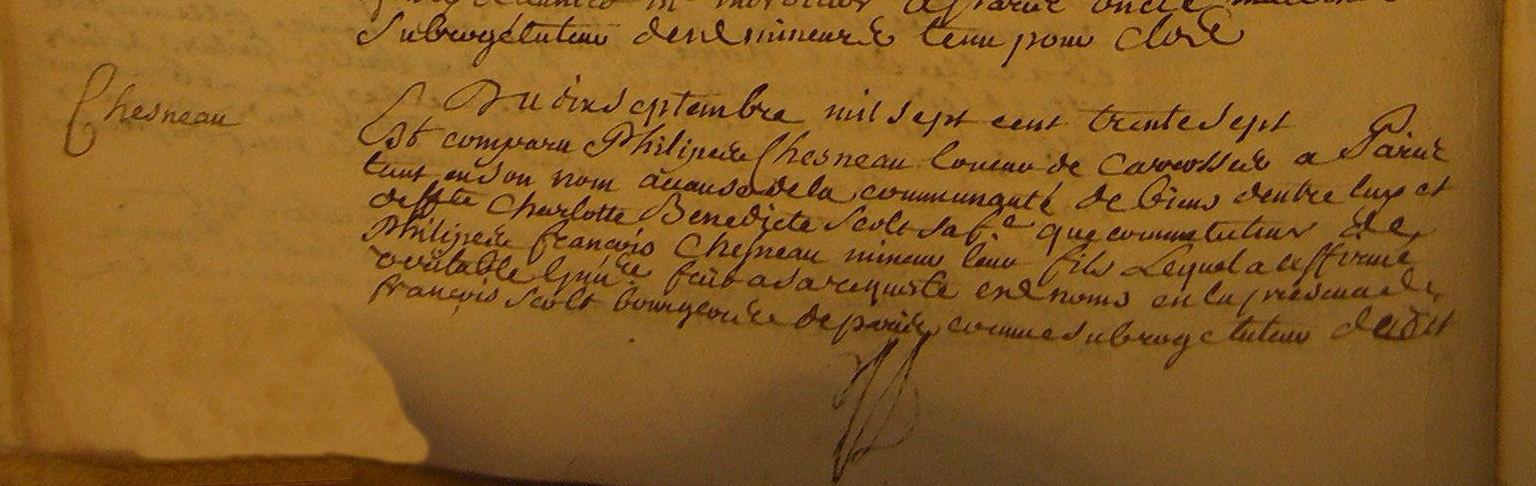 Subrogé tuteur desd mineurs tenu pour clos
Chesneau
Du dix Septembre mil sept cent trente sept
Est comparu Philippe Chesneau loueur de carrosses a Paris
tant en son nom a cause de la communauté de biens dentre luy et
deffte Charlotte Benedicte Scolt sa fe que comme tuteur de
Philippe françois Chesneau mineur leur fils Lequel a affirmé
veritable linvre fait a sa requeste esd noms en la presence de
françois Scolt bourgeois de paris comme subrogé tuteur dudit